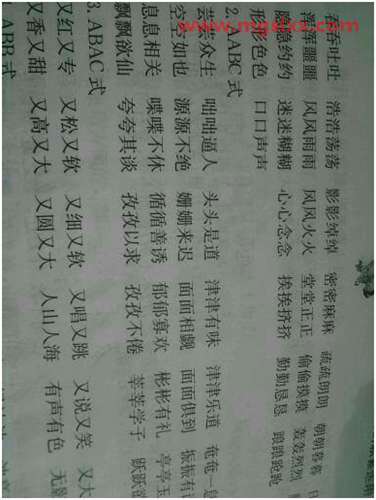 吞吞吐吐 浩浩荡荡 影影绰绰 密密麻麻 疏疏朗朗 朝朝暮暮
风风雨雨 风风火火 堂堂正正 偷偷摸摸 轰轰烈烈
隐隐约约 迷迷糊糊 心心念念 挨挨挤挤 勤勤恳恳 踉踉跄跄
形形色色 口口声声
2. AABC 式
芸芸众生 咄咄逼人 头头是道 津津有味 津津乐道 奄奄一
空空如也 源源不绝 姗姗来迟 面面相觑 面面俱到 振振有
息息相关 喋喋不休 循循善诱 郁郁寡欢 彬彬有礼 亭亭玉
飘飘欲仙 夸夸其谈 孜孜以求 孜孜不倦 莘莘学子 跃跃欲
3. ABAC 式
又红又专 又松又软 又细又软 又唱又跳 又说又笑 又大
又香又甜 又高又大 又圆又大 人山人海 有声有色 无
ABB 式